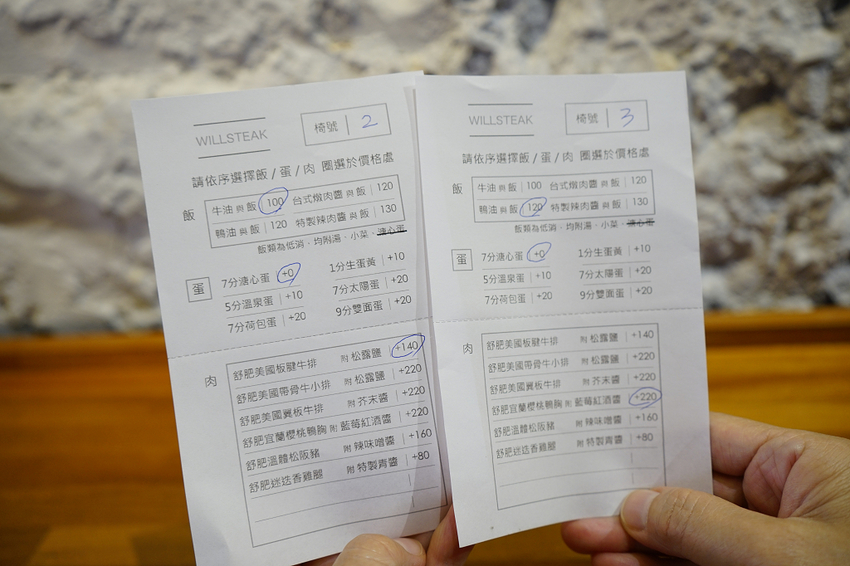 WILLSTEAK
椅號 | 2
請依序選擇飯/蛋/肉 圈選於價格處
飯
牛油與飯 | 100 台式燉肉醬與飯 | 120
鴨油與飯 | 120 特製辣肉醬與飯 | 130
飯類為低消，均附湯、小菜、溏心蛋
蛋
7分溏心蛋 | +0 1分生蛋黃 | +10
5分溫泉蛋 | +10 7分太陽蛋 | +20
7分荷包蛋 | +20 9分雙面蛋 | +20
肉
舒肥美國板腱牛排 附 松露鹽 | +140
舒肥美國帶骨牛小排 附 松露鹽 | +220
舒肥美國翼板牛排 附 芥末醬 | +220
舒肥宜蘭櫻桃鴨胸 附 藍莓紅酒醬 | +220
舒肥溫體松阪豬 附 辣味噌醬 | +160
舒肥迷迭香雞腿 附 特製青醬 | +80
WILLSTEAK
椅號 | 3
請依序選擇飯/蛋/肉 圈選於價格處
飯
牛油與飯 | 100 台式燉肉醬與飯 | 120
鴨油與飯 | 120 特製辣肉醬與飯 | 130
飯類為低消，均附湯、小菜、溏心蛋
蛋
7分溏心蛋 | +0 1分生蛋黃 | +10
5分溫泉蛋 | +10 7分太陽蛋 | +20
7分荷包蛋 | +20 9分雙面蛋 | +20
肉
舒肥美國板腱牛排 附 松露鹽 | +140
舒肥美國帶骨牛小排 附 松露鹽 | +220
舒肥美國翼板牛排 附 芥末醬 | +220
舒肥宜蘭櫻桃鴨胸 附 藍莓紅酒醬 | +220
舒肥溫體松阪豬 附 辣味噌醬 | +160
舒肥迷迭香雞腿 附 特製青醬 | +80